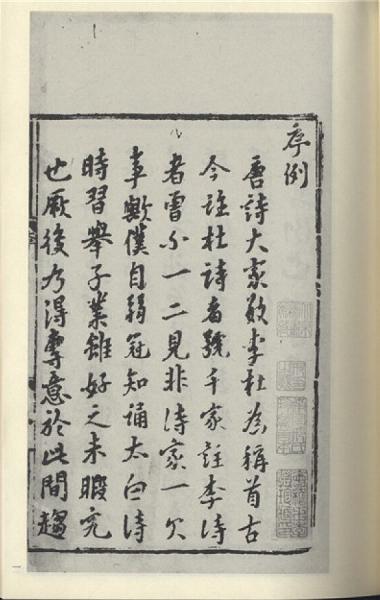 序例
唐詩大家數李杜為稱首古
今註杜詩者號千家註李詩
者曾不一二見非詩家一欠
事歟僕自弱冠知誦太白詩
時習舉子業雖好之未暇究
也厥後乃得專意於此間趨